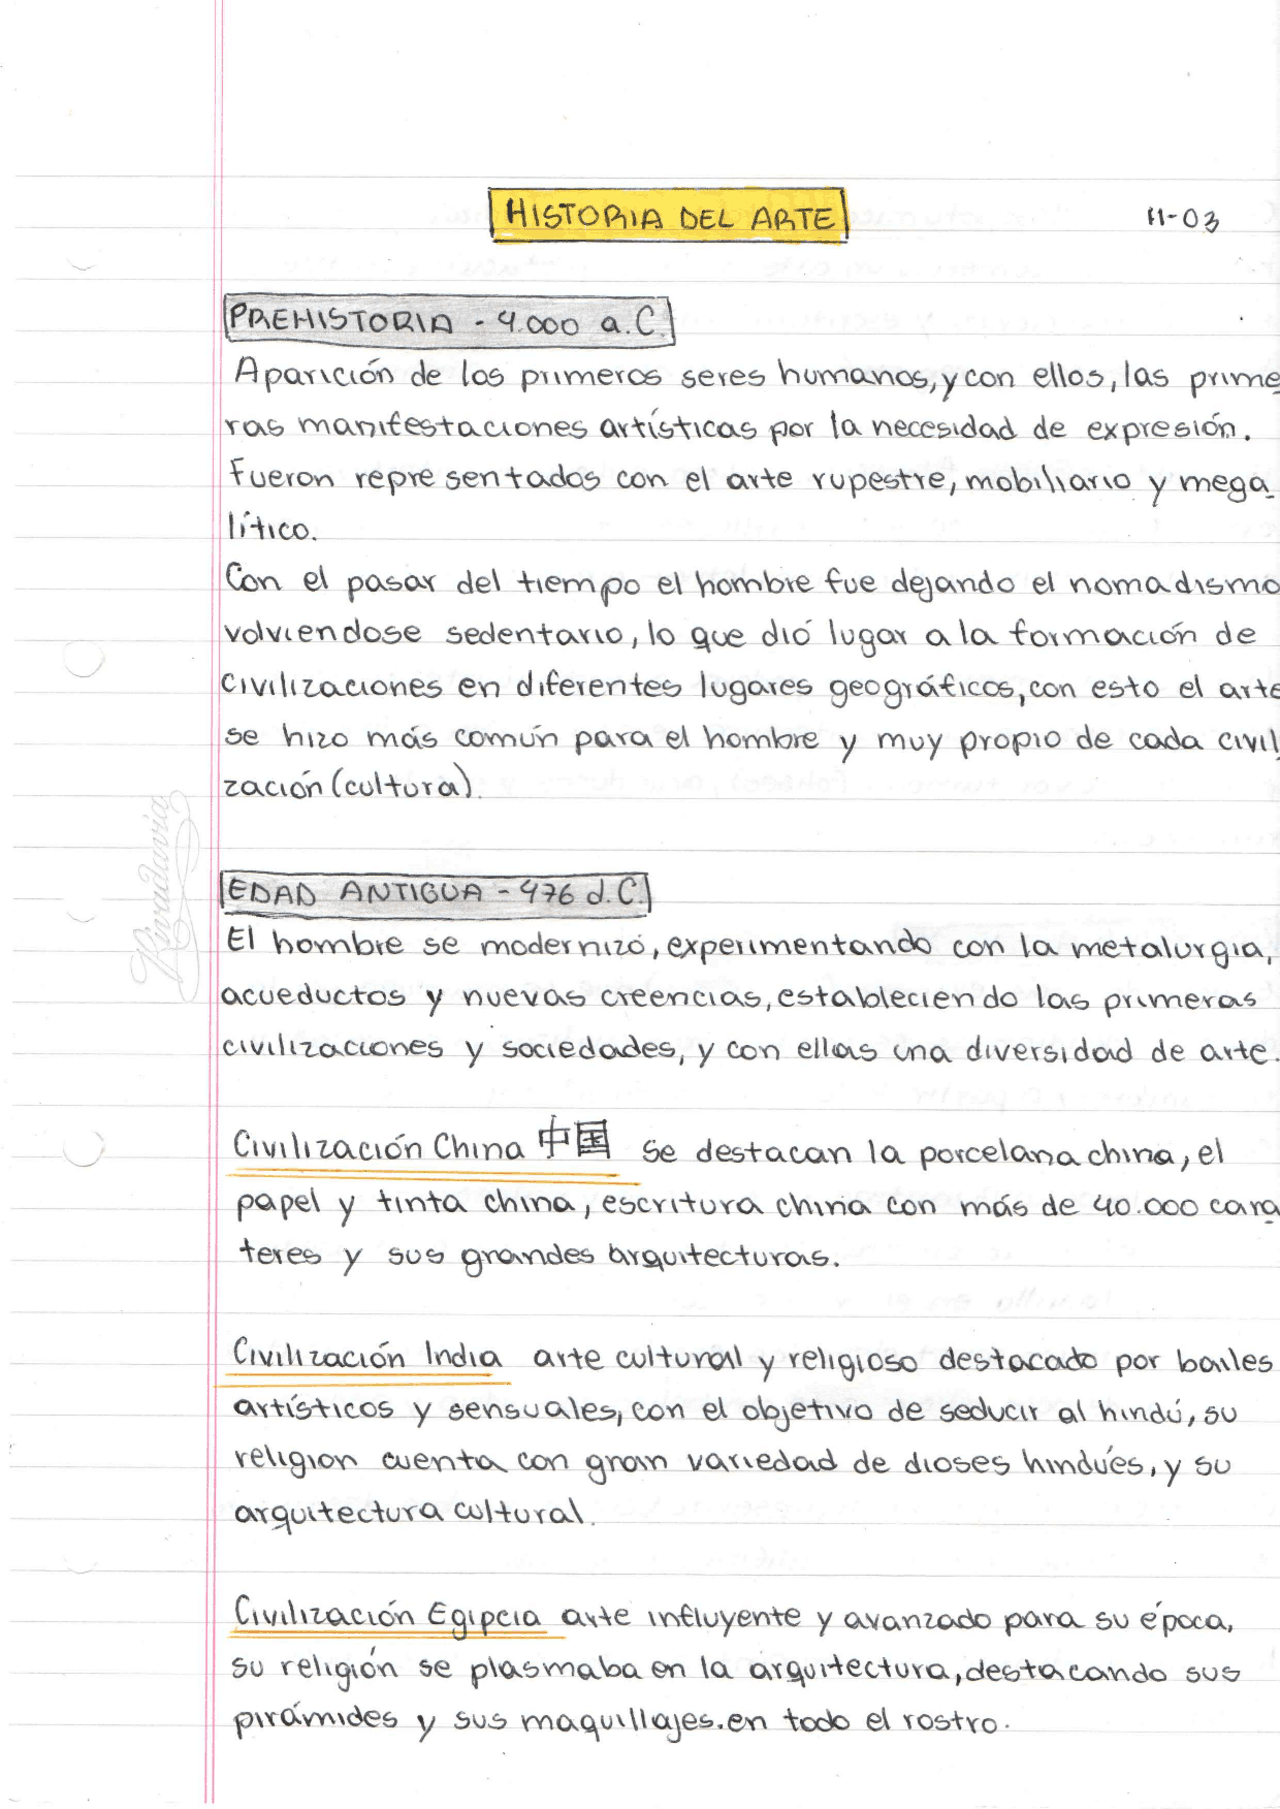 HISTORIA DEL ARTE
11-03
PREHISTORIA - 4.000 a.C.
Aparición de los primeros seres humanos, y con ellos, las prime
ras manifestaciones artísticas por la necesidad de expresión.
Fueron representados con el arte rupestre, mobiliario y mega
lítico.
Con el pasar del tiempo el hombre fue dejando el nomadismo
volviendose sedentario, lo que dió lugar a la formación de
civilizaciones en diferentes lugares geográficos, con esto el arte
se hizo más común para el hombre y muy propio de cada civili
zación (cultura).
Rivadavia
EDAD ANTIGUA - 476 d.C.
El hombre se modernizó, experimentando con la metalurgia,
acueductos y nuevas creencias, estableciendo las primeras
civilizaciones y sociedades, y con ellas una diversidad de arte.
Civilización China 中国 se destacan la porcelana china, el
papel y tinta china, escritura china con más de 40.000 cara
teres y sus grandes arquitecturas.
Civilización India arte cultural y religioso destacado por bailes
artísticos y sensuales, con el objetivo de seducir al hindú, su
religion cuenta con gran variedad de dioses hindués, y su
arquitectura cultural.
Civilización Egipcia arte influyente y avanzado para su época,
su religión se plasmaba en la arquitectura, destacando sus
pirámides y sus maquillajes.en todo el rostro.